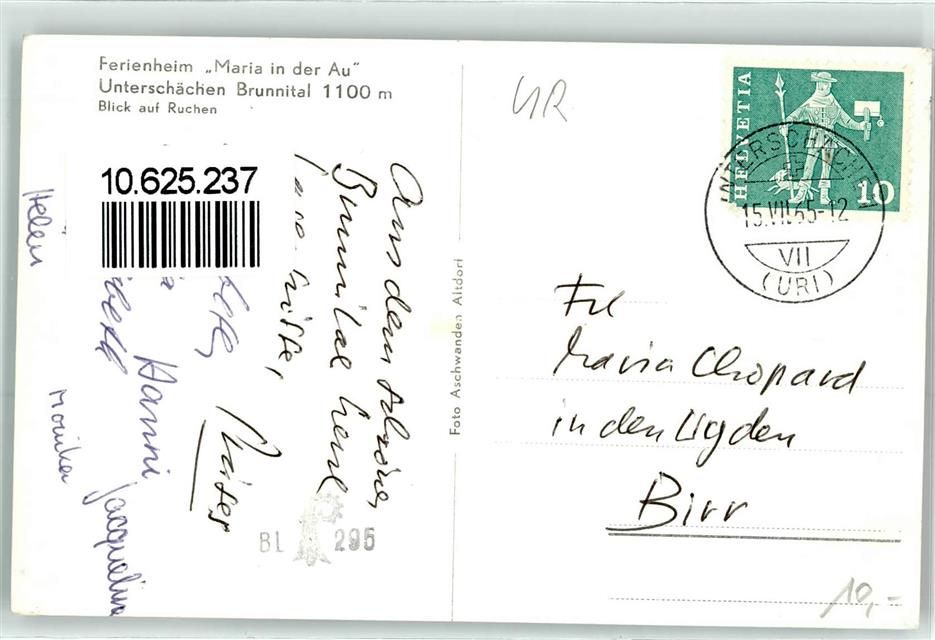 Ferienheim „Maria in der Au"
Unterschächen Brunnital 1100 m
Blick auf Ruchen
10.625.237
Aus dem schönen
Brunnital
Hanni
Jacqueline
Foto Aschwanden Altdorf
BL 295
UR
HELVETIA
10
UNTERSCHÄCHEN
15.VII.65-12
VII
(URI)
Frl
Maria Chopard
in den Ugden
Birr
10,-